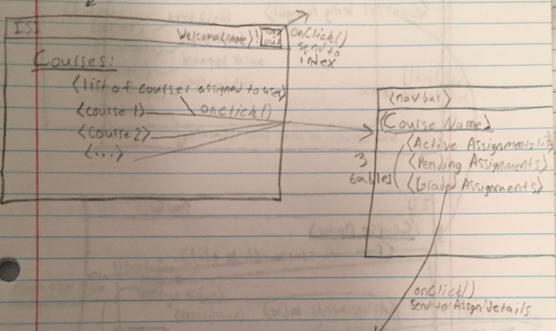 ISS
Welcome <name>!
onClick()
send to
index
Courses:
<list of courses assigned to user>
<course 1>
onclick()
<course 2>
<...>
<navbar>
<Course Name>
3
tables
<Active Assignments>
<Pending Assignments>
<Graded Assignments>
onClick()
send to Assign details